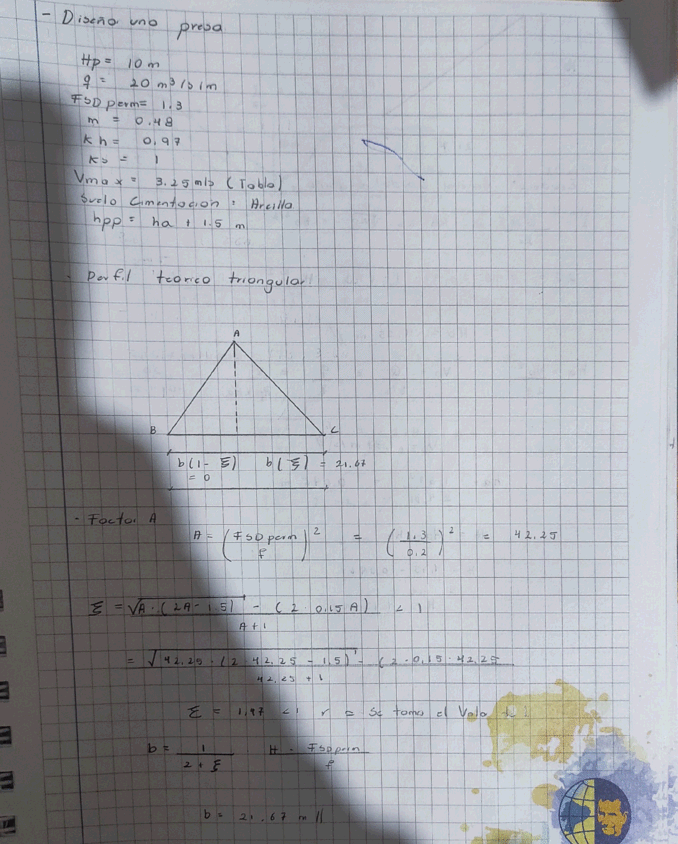 - Diseño una presa
Hp = 10 m
q = 20 m³/s/m
FSD perm = 1.3
m = 0.48
Kh = 0.97
Ks = 1
Vmax = 3.25 m/s (Tabla)
Suelo Cimentacion: Arcilla
hpp = ha + 1.5 m
- Perfil teorico triangular
A
B C
b(1-ξ) b(ξ) = 21.67
= 0
- Factor A
A = (FSD perm / f)² = (1.3 / 0.2)² = 42.25
ξ = √A·(2A-1.5) - (2·0.15A) < 1
A+1
= √42.25·(2·42.25-1.5) - (2·0.15·42.25
42.25 + 1
ξ = 1.97 < 1 Se toma el Valo
b = 1 / 2+ξ H · FSD perm / f
b = 21.67 m //